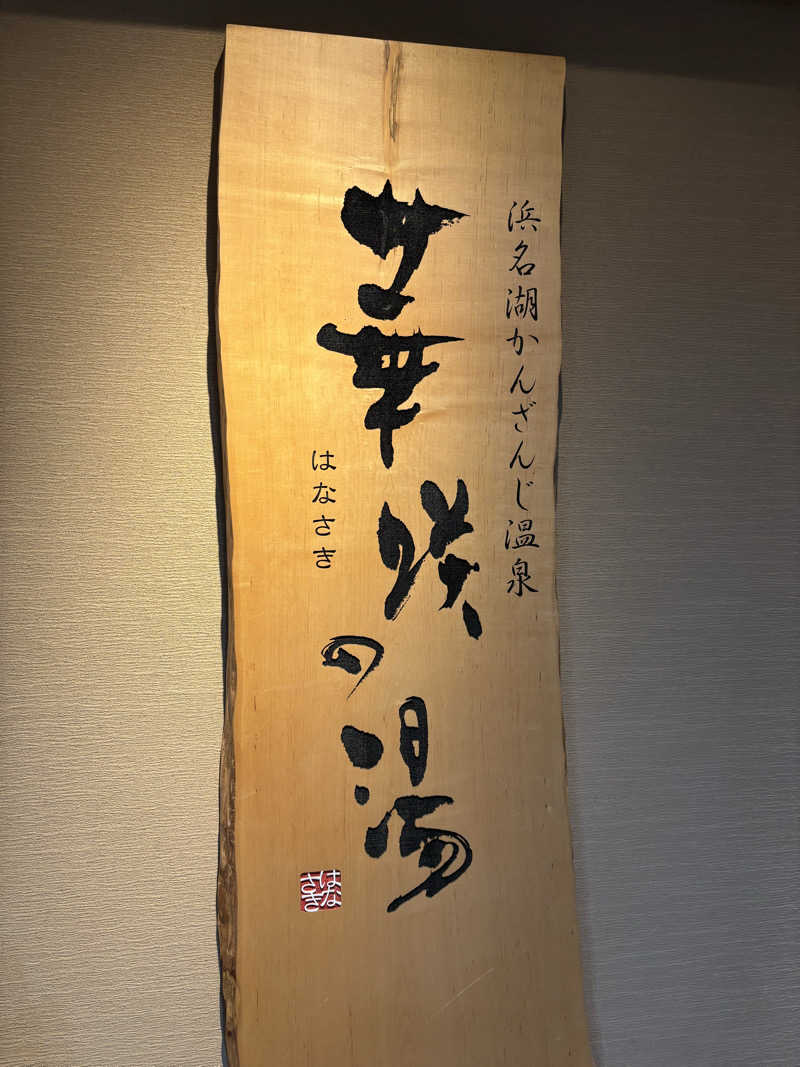 浜名湖かんざんじ温泉
華咲の湯
はなさき
はな
さき